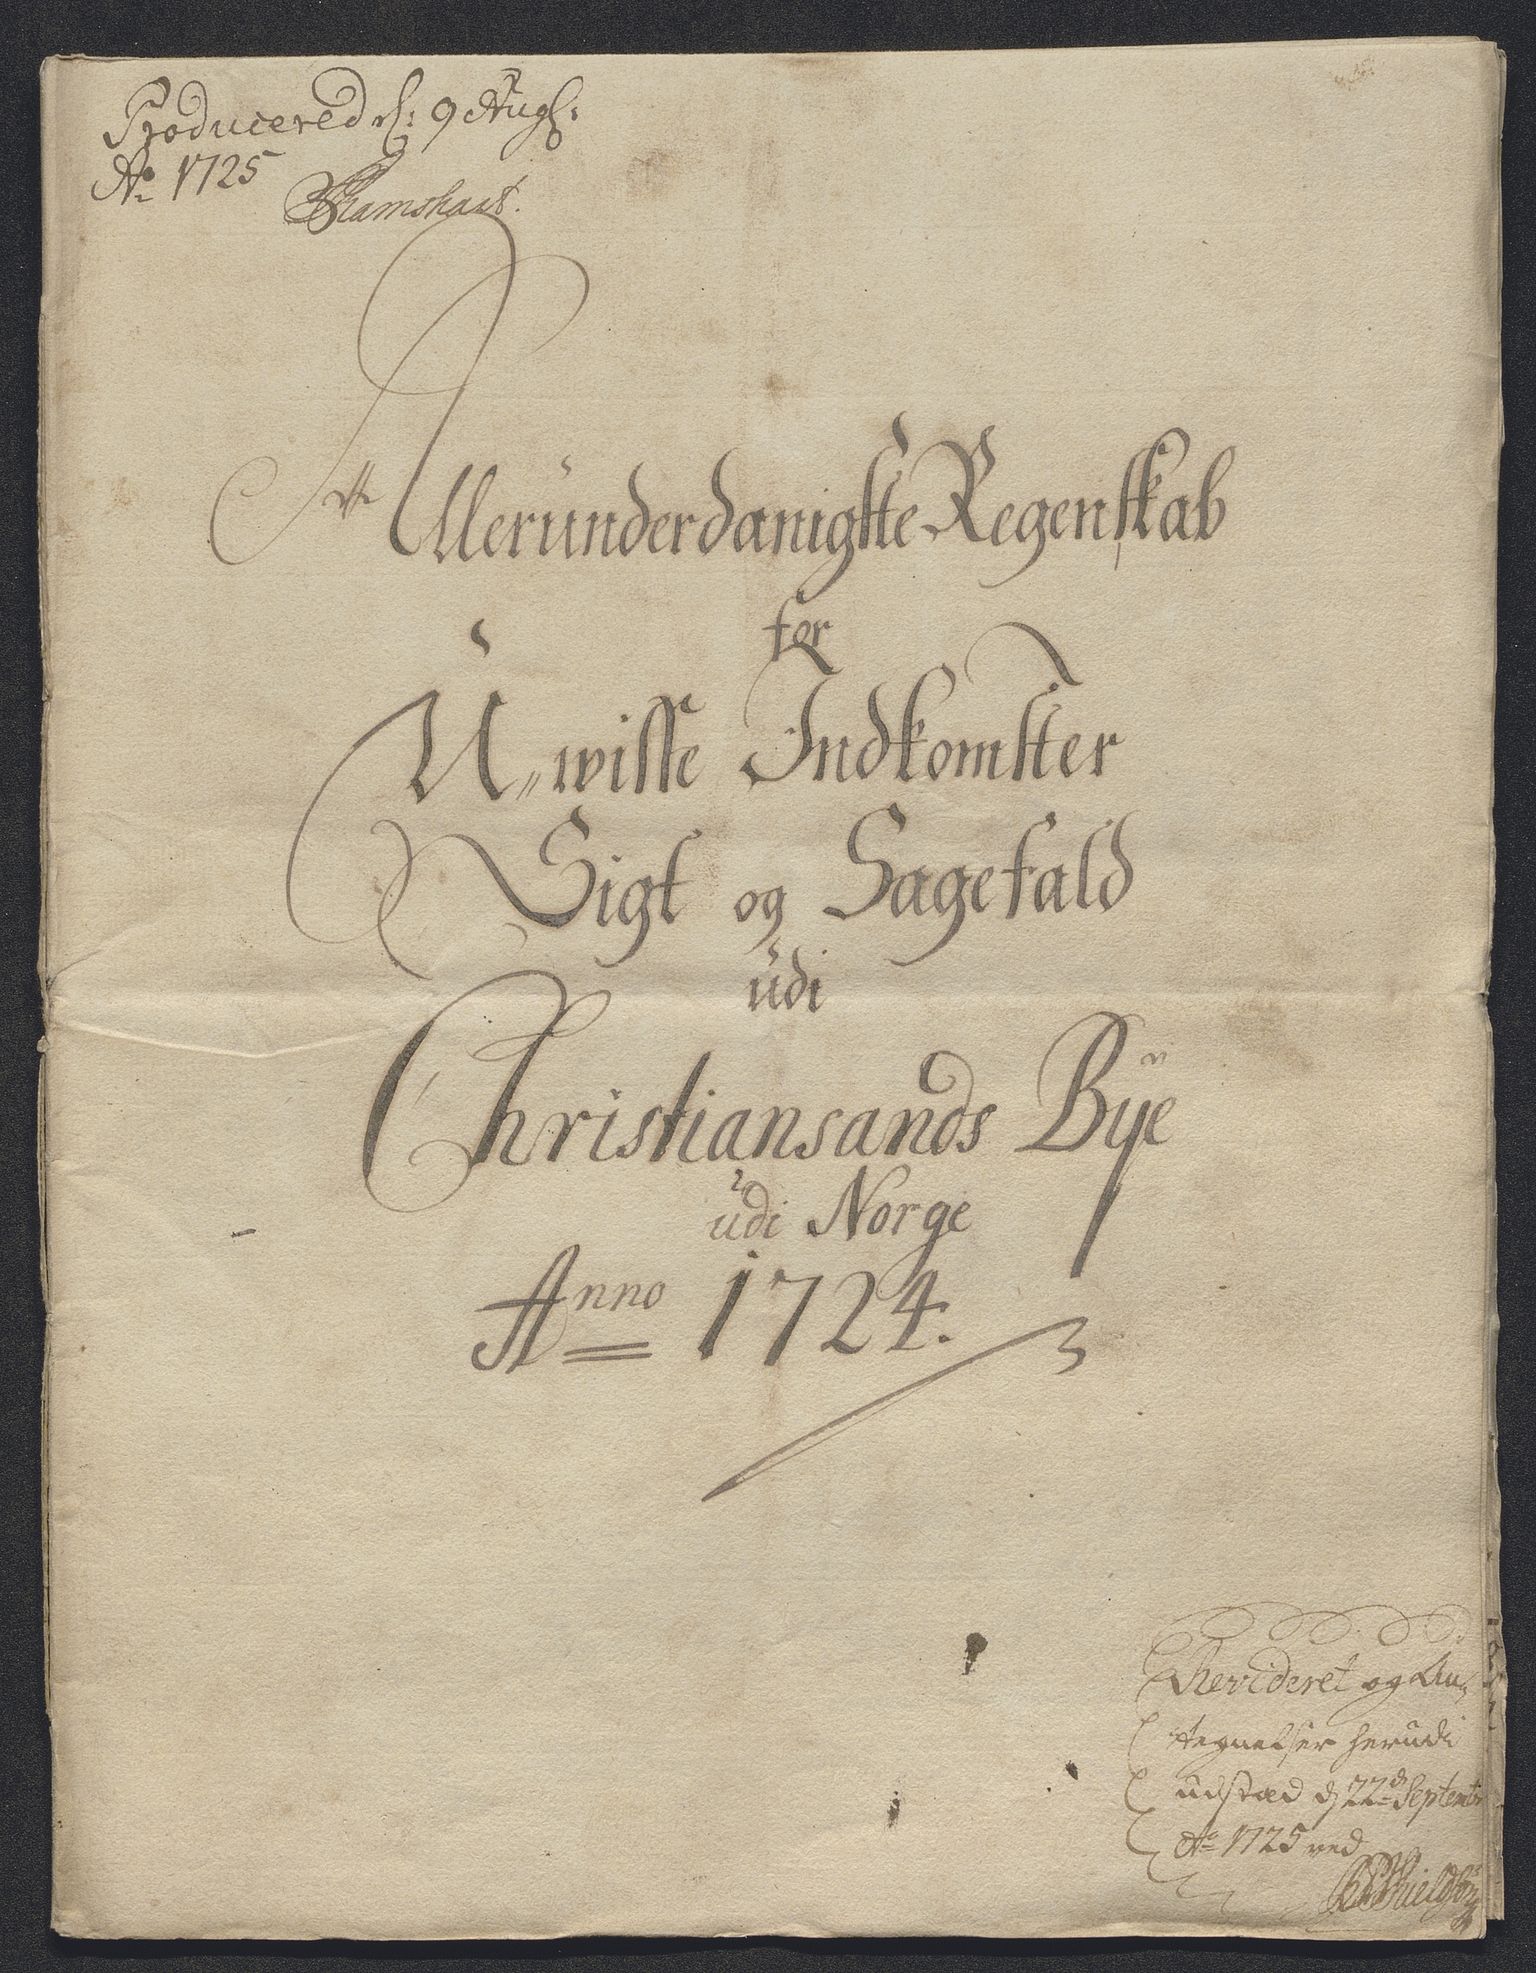 Producered d: 9 Aug:
Ao 1725
Alleründerdanigste Regenskab
for
U,,wisse Indkomster
Sigt og Sagefald
üdi
Christiansands Bÿe
üdi Norge
Anno 1724.
Revideret og An-
tegnelser herudi
udstæd d 22de Septembr
Ao 1725 ved